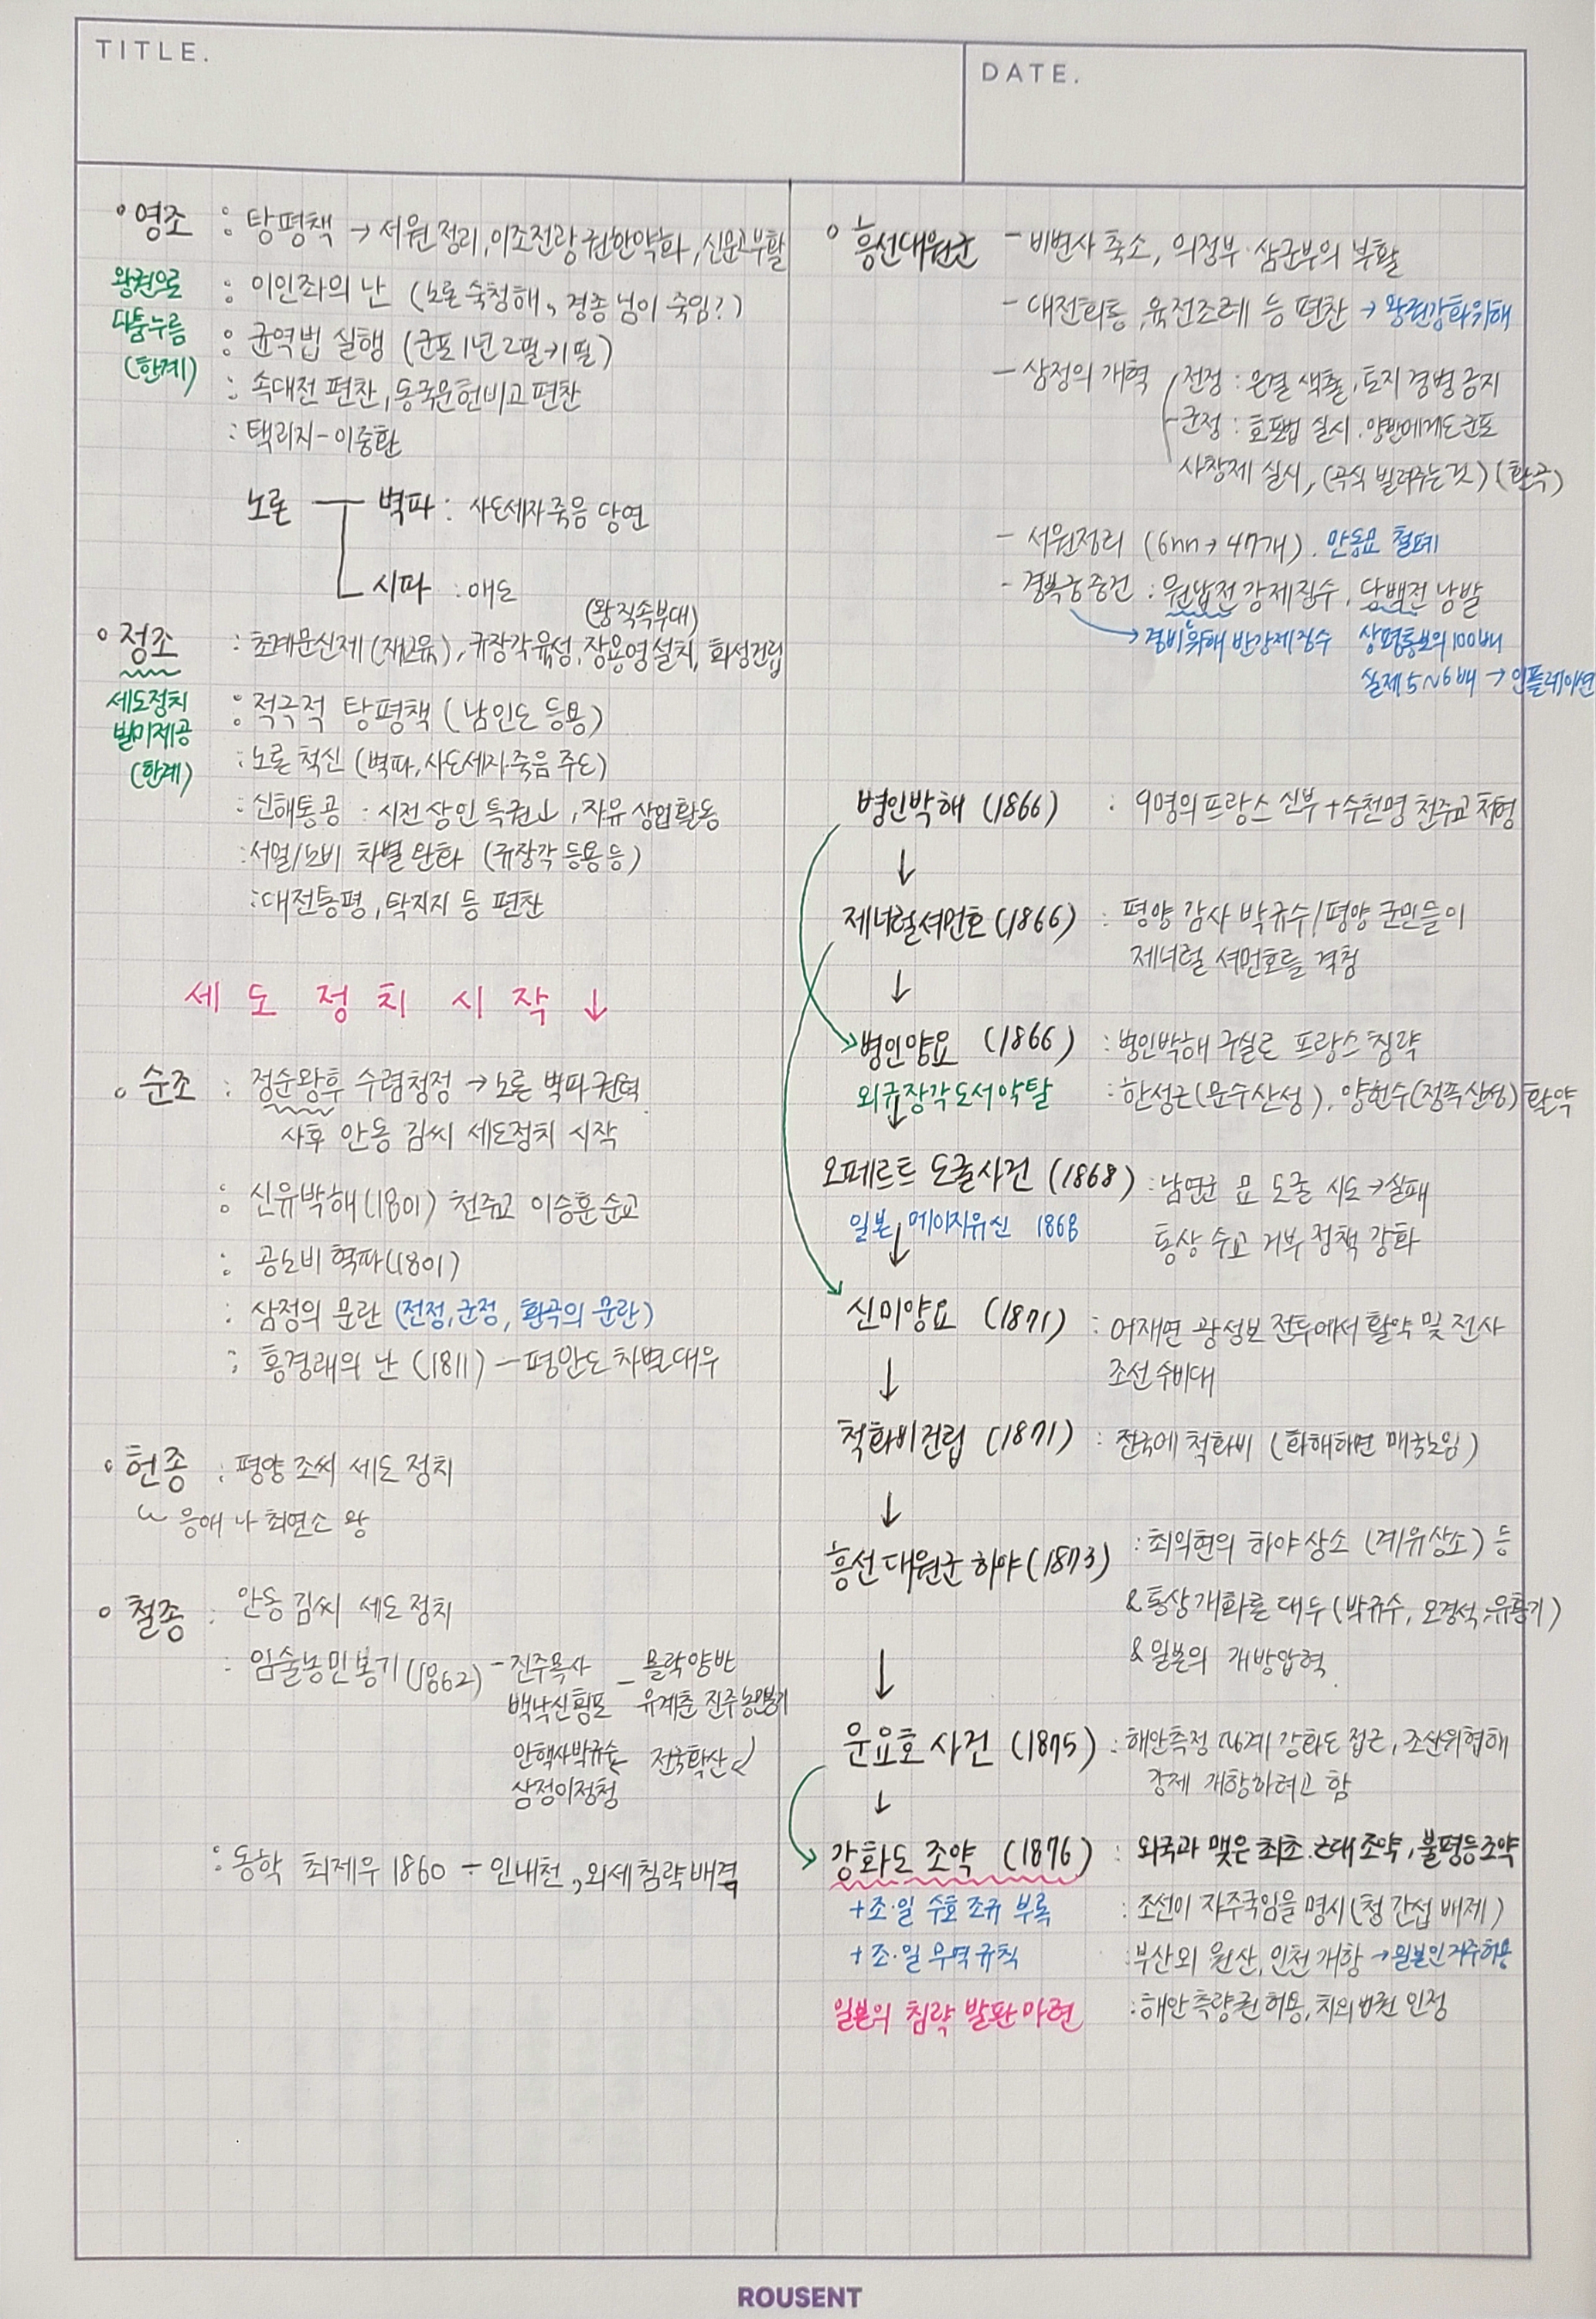 TITLE.
DATE.
영조 : 탕평책 → 서원정리, 이조전랑 권한약화, 신문고부활
왕권으로
다툼누름
(한계)
: 이인좌의 난 (노론 숙청해, 경종 님이 죽임?)
: 균역법 실행 (군포 1년 2필→1필)
: 속대전 편찬, 동국문헌비고 편찬
: 택리지 - 이중환
노론 벽파 : 사도세자 죽음 당연
시파 : 애도
(왕 직속부대)
정조 : 초계문신제 (재교육), 규장각육성, 장용영설치, 화성건립
세도정치
빌미제공
(한계)
: 적극적 탕평책 (남인도 등용)
: 노론 척신 (벽파, 사도세자 죽음 주도)
: 신해통공 : 시전 상인 특권↓, 자유 상업활동
: 서얼/노비 차별 완화 (규장각 등용 등)
: 대전통편, 탁지지 등 편찬
세 도 정 치 시 작 ↓
순조 : 정순왕후 수렴청정 → 노론 벽파권력
사후 안동 김씨 세도정치 시작
: 신유박해(1801) 천주교 이승훈 순교
: 공노비 혁파(1801)
: 삼정의 문란 (전정, 군정, 환곡의 문란)
: 홍경래의 난 (1811) - 평안도 차별대우
헌종 : 평양 조씨 세도 정치
응애 나 최연소 왕
철종 : 안동 김씨 세도 정치
: 임술농민봉기(1862) - 진주목사 - 몰락양반
백낙신횡포 유계춘 진주농민봉기
안핵사박규수 전국확산
삼정이정청
: 동학 최제우 1860 - 인내천, 외세침략배격
흥선대원군 - 비변사 축소, 의정부·삼군부의 부활
- 대전회통, 육전조례 등 편찬 → 왕권강화위해
- 삼정의 개혁 전정 : 은결 색출, 토지 겸병 금지
군정 : 호포법 실시. 양반에게도 군포
사창제 실시, (곡식 빌려주는 것) (환곡)
- 서원정리 (6nn → 47개). 만동묘 철폐
- 경복궁 중건 : 원납전 강제징수, 당백전 남발
→ 경비 위해 반강제징수 상평통보의 100배
실제 5~6배 → 인플레이션
병인박해 (1866) : 9명의 프랑스 신부 + 수천명 천주교 처형
↓
제너럴셔먼호 (1866) : 평양 감사 박규수/평양 군민들이
제너럴 셔먼호를 격침
↓
병인양요 (1866) : 병인박해 구실로 프랑스 침략
외규장각도서약탈 : 한성근(문수산성), 양헌수(정족산성) 활약
↓
오페르트 도굴사건 (1868) : 남연군 묘 도굴 시도 → 실패
일본 메이지유신 1868 통상 수교 거부 정책 강화
↓
신미양요 (1871) : 어재연 광성보 전투에서 활약 및 전사
조선 수비대
↓
척화비건립 (1871) : 전국에 척화비 (화해하면 매국노임)
↓
흥선대원군 하야 (1873) : 최익현의 하야 상소 (계유상소) 등
& 통상개화론 대두 (박규수, 오경석, 유홍기)
& 일본의 개방압력.
↓
운요호 사건 (1875) : 해안측정 강화도 접근, 조선위협해
강제 개항하려고 함
↓
강화도 조약 (1876) : 외국과 맺은 최초 근대 조약, 불평등조약
+조·일 수호 조규 부록 : 조선이 자주국임을 명시 (청 간섭 배제)
+조·일 무역규칙 : 부산 외 원산, 인천 개항 → 일본인 거주허용
일본의 침략 발판 마련 : 해안 측량권 허용, 치외법권 인정
ROUSENT